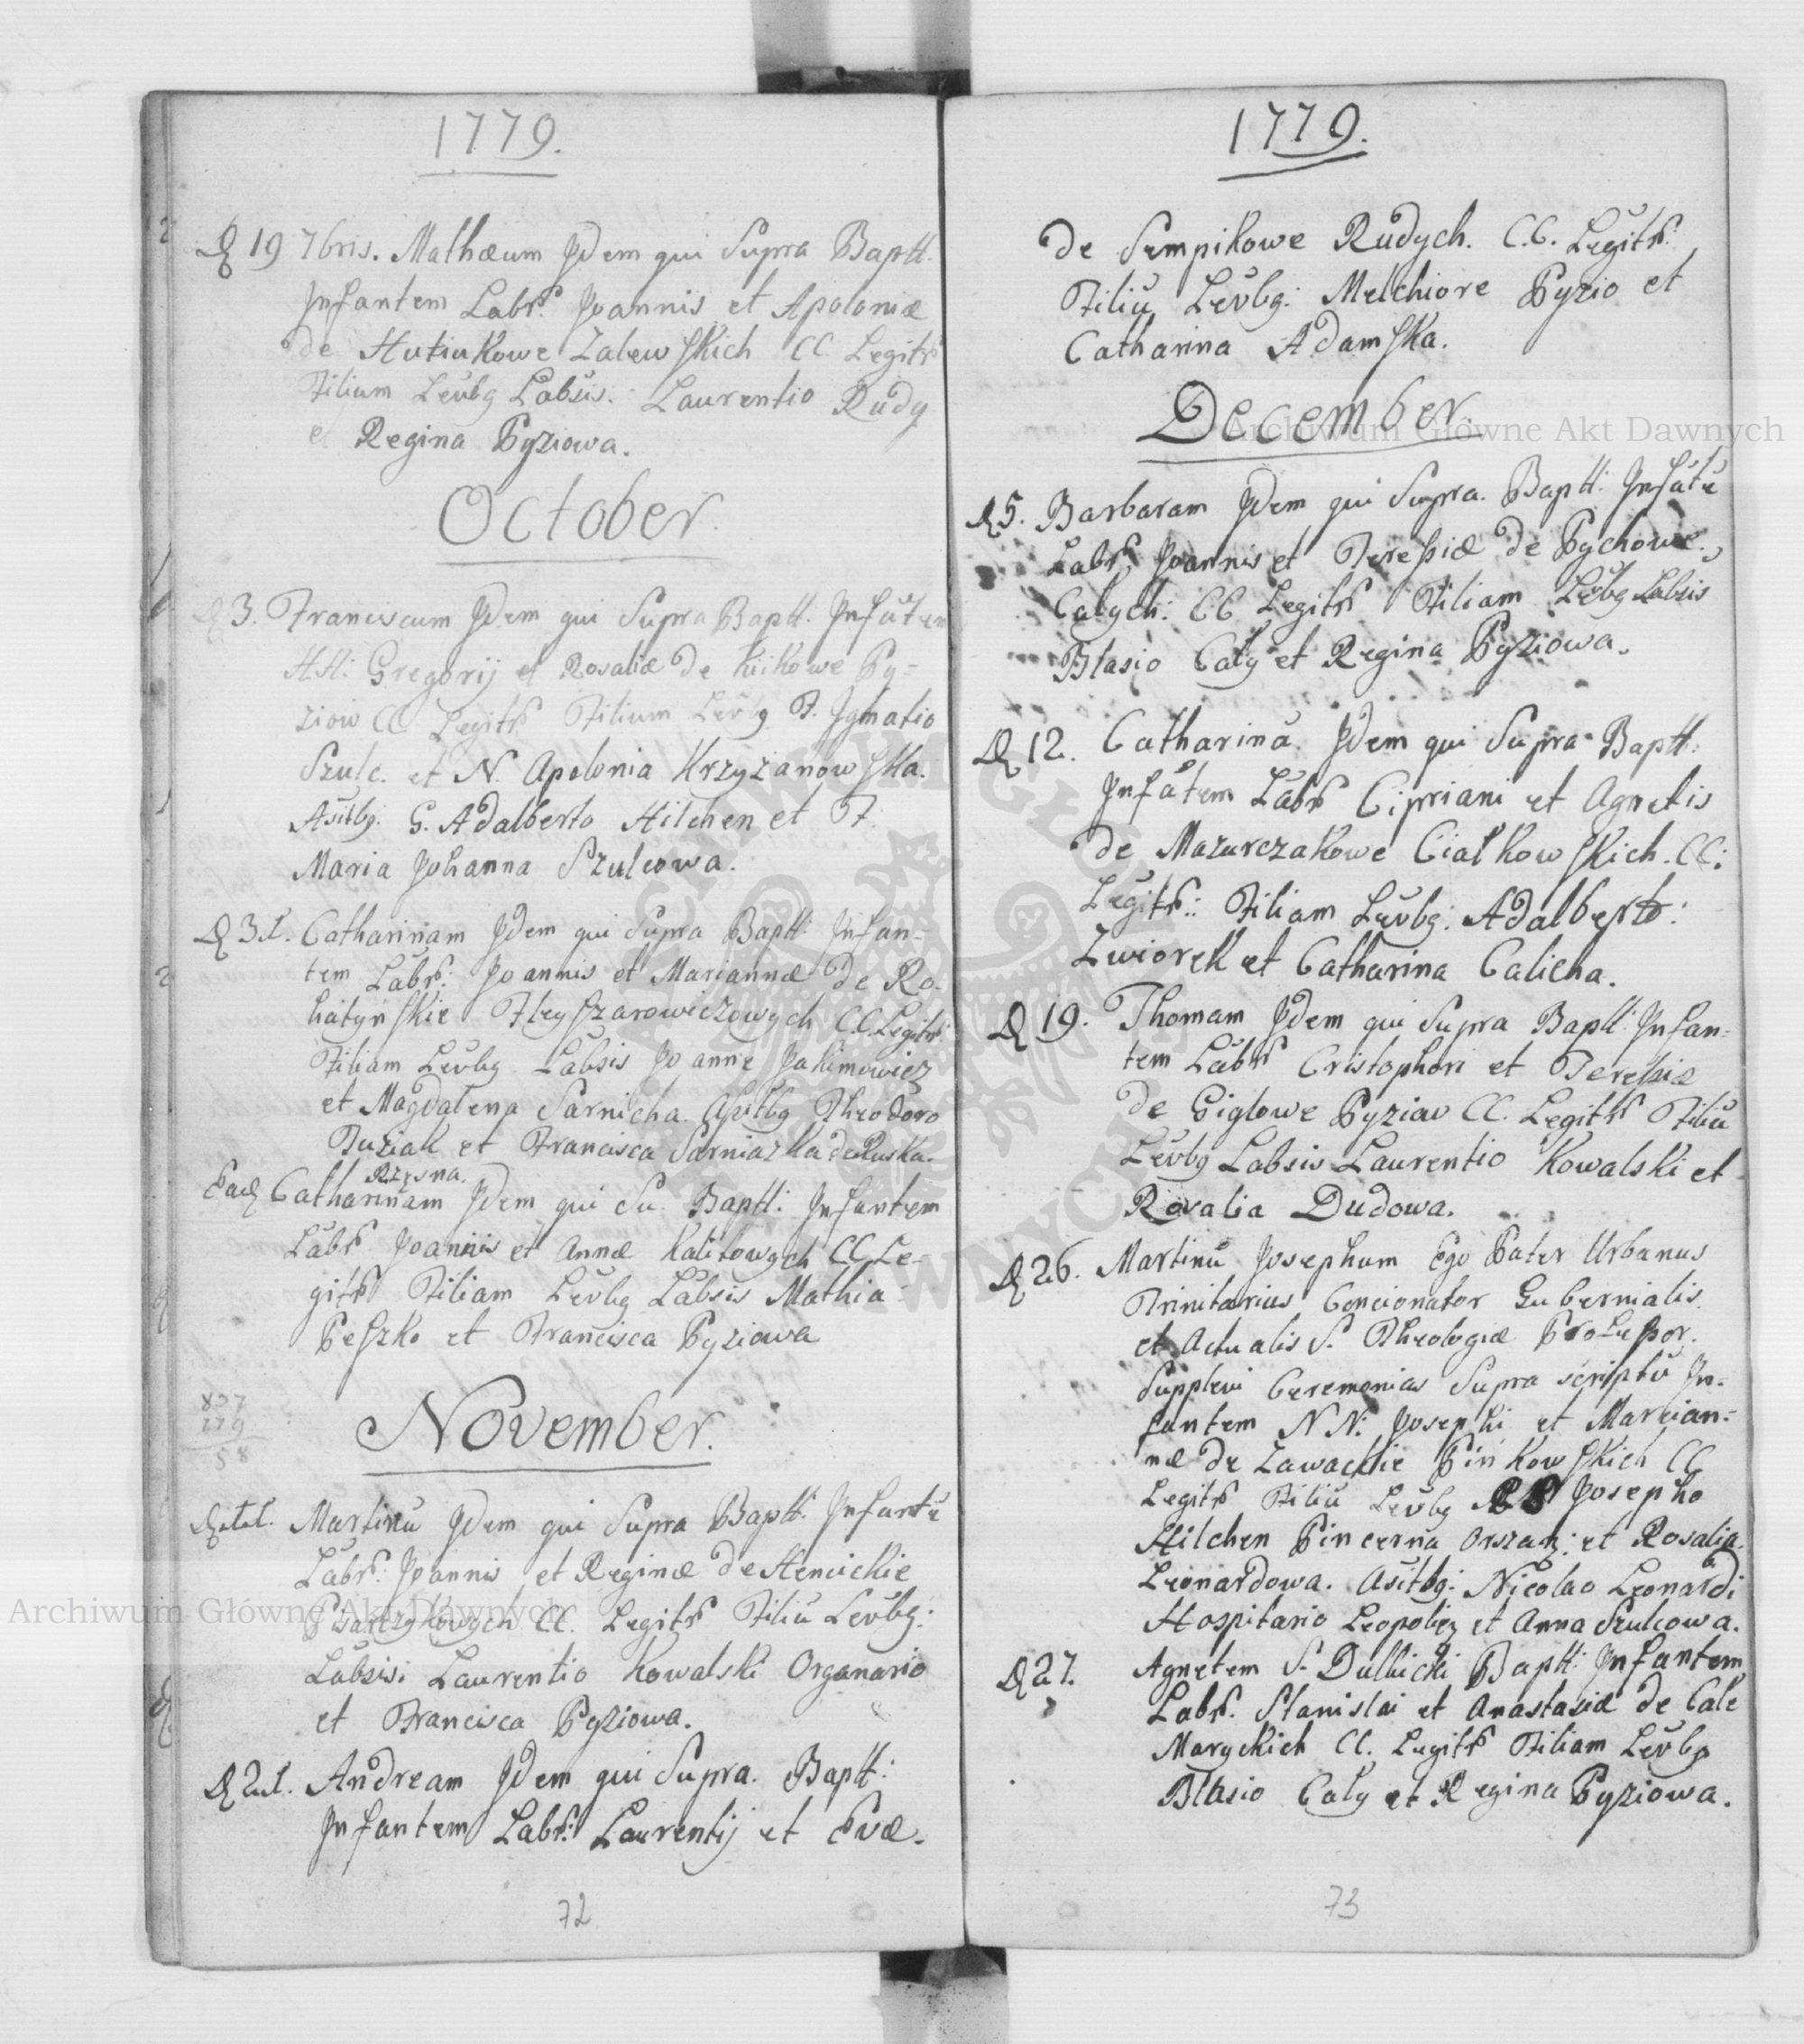 1779.
D 19 7bris. Mathæum Jdem qui Supra Baptt.
Jnfantem Labr. Joannis et Apoloniæ
de Hutiukowe Zalewskich CC Legitr
Filium Levbg Labsis. Laurentio Rudy
et Regina Pyziowa.
October.
D 3. Franciscum Jdem qui Supra Baptt. Jnfatem
HH: Gregorij et Rosaliæ de Kiikowe Py-
ziow CC Legitr Filium Levbg F. Jgnatio
Szulc. et N. Apolonia Krzyzanowska.
Asitbg. G. Adalberto Hilchen et F.
Maria Johanna Szulcowa.
D 31. Catharinam Jdem qui Supra Baptt. Jnfan=
tem Labr: Joannis et Mariannæ de Ro-
hatynskie Fleyszarowiczowych CC. Legitr
Filiam Levbg. Labsis Joanne Jakimowicz
et Magdalena Sarnicha. Asitbg Theodoro
Tuziak et Francisca Sarniazka de Ruska.
Rzęsna.
Ead Catharinnam Jdem qui Su. Baptt: Jnfantem
Labr Joannis et Annæ Kalitowych CC Le-
gitr Filiam Levbg Labsis Mathia
Peszko et Francisca Pyziowa
837
779
58
November.
D 11. Martinu Jdem qui Supra Baptt. Jnfantu
Labr: Joannis et Reginæ de Henickie
Pisarczykowych CC. Legitr Filiu Levbg:
Labsis: Laurentio Kowalski Organario
et Francisca Pyziowa.
D 21. Andream Jdem qui Supra. Baptt:
Jnfantem Labr: Laurentij et Evæ.
72
1779.
de Sempikowe Rudych. C.C. Legitr.
Filiu Levbg: Melchiore Pyzio et
Catharina Adamska.
December.
D 5. Barbaram Jdem qui Supra. Baptt: Jnfatu
Labr Joannis et Teressiæ de Pychowe.
Calych: CC Legitr Filiam Levbg Labsis
Blasio Caly et Regina Pyziowa.
D 12. Catharina Jdem qui Supra Baptt:
Jnfatem Labr Cipriani et Agnetis
de Mazurczakowe Cialkowskich. CC:
Legitr: Filiam Levbg: Adalberto:
Zwiorek et Catharina Calicha.
D 19. Thomam Jdem qui Supra Baptt: Jnfan-
tem Labr Cristophori et Teressiæ
de Giglowe Pyziow CC. Legitr Filiu
Levbg Labsis Laurentio Kowalski et
Rosalia Dudowa.
D 26. Martinu Josephum Ego Pater Urbanus
Trinitarius Concionator Gubernialis.
et Actualis S. Theologiæ Professor.
Supplevi Ceremonias Supra scriptu Jn-
fantem NN: Josephi et Marcian=
næ de Zawackie Pinkowskich CC
Legitr Filiu Levbg Josepho
Hilchen Pincerna Orszan: et Rosalia
Leonardowa. Asitbg: Nicolao Leonardi
Hospitario Leopoliez et Anna Szulcowa.
D 27. Agnetem S. Dullicki Baptt: Jnfantem
Labr. Stanislai et Anastasiæ de Cale
Maryckich CC. Legitr Filiam Levbg
Blasio Caly et Regina Pyziowa.
73
Archiwum Główne Akt Dawnych
Archiwum Główne Akt Dawnych